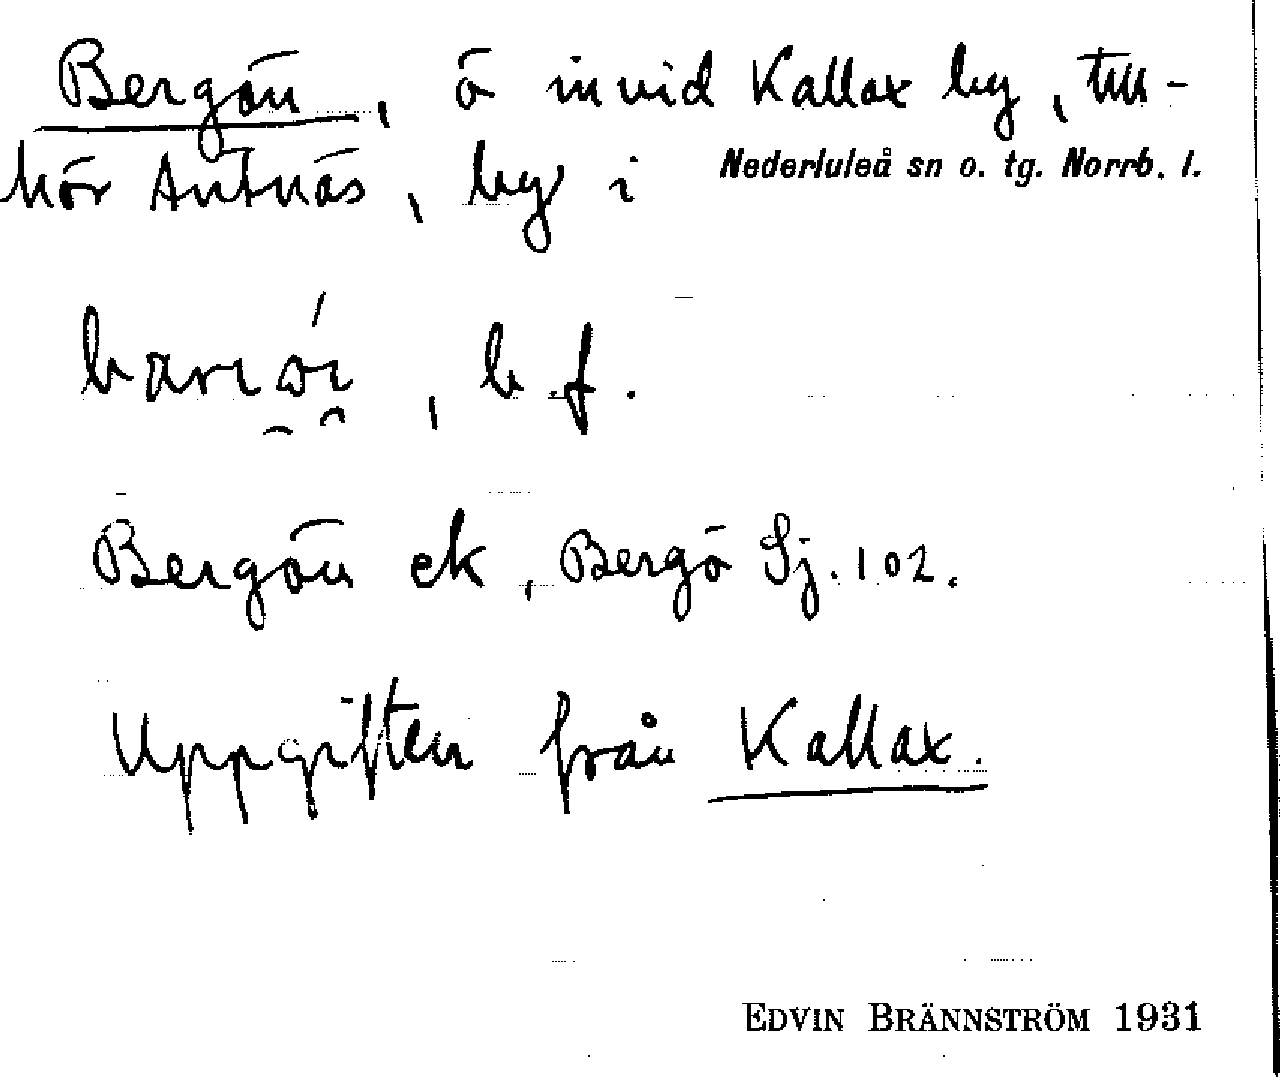 Bergön, ö invid Kallax by, till-
hör Antnäs, by i Nederluleå sn o. tg. Norrb. l.
b.f.
Bergön ek, Bergö Sj. 102.
Uppgiften från Kallax.
EDVIN BRÄNNSTRÖM 1931